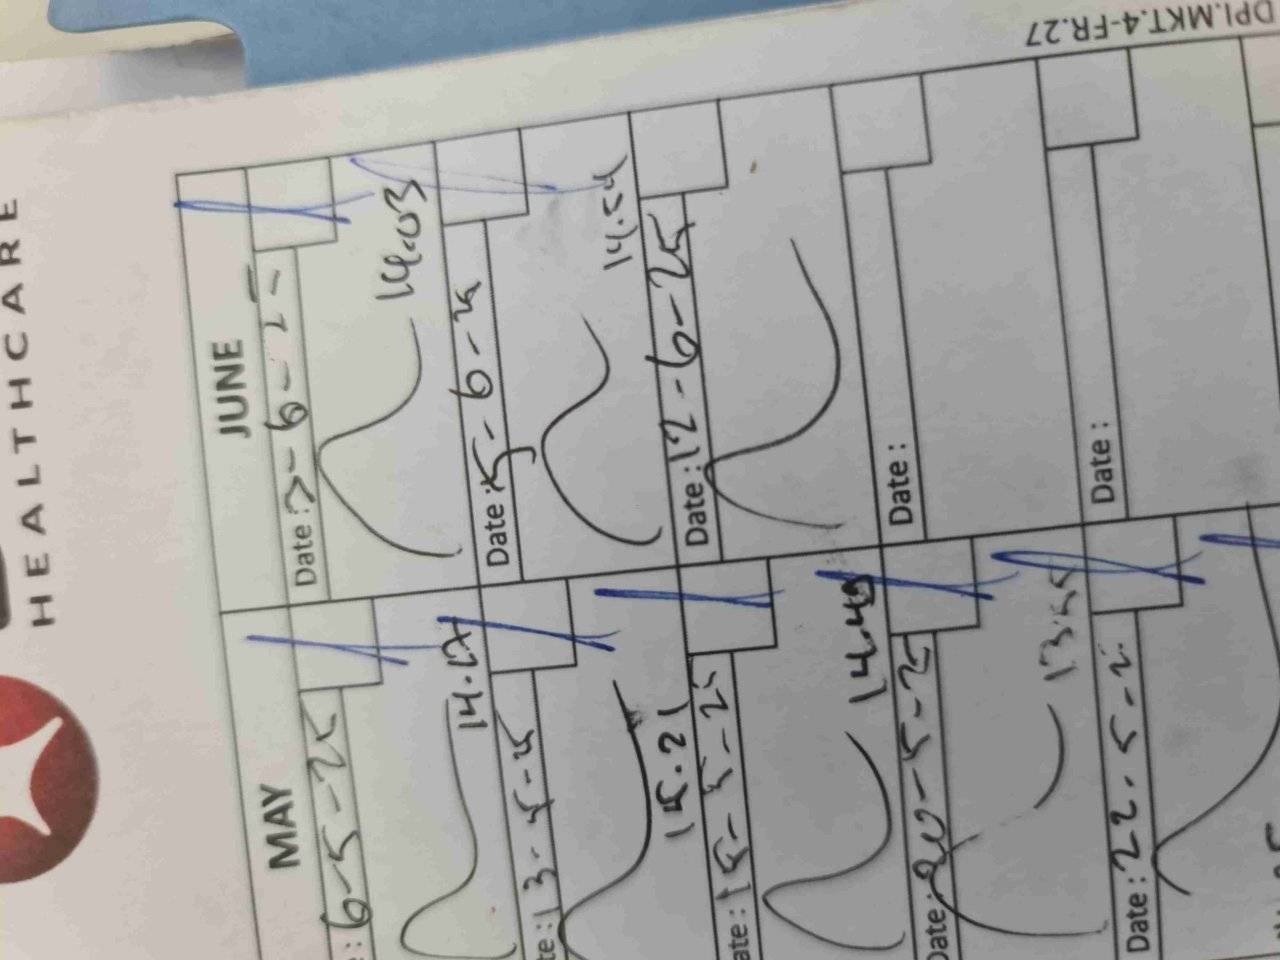 HEALTHCARE
DPI.MKT.4-FR.27
MAY
6-5-25
14.17
13-5-25
15.21
Date: 15-5-25
14.49
Date: 20-5-25
13.55
Date: 22.5-2
JUNE
Date: 6-25
14.03
Date: 5-6-25
14.54
Date: 12-6-25
Date:
Date: